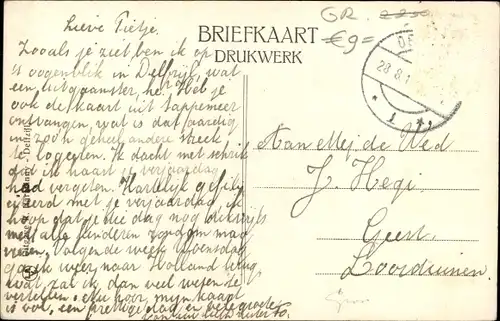 Lieve Pietje.
Zooals je ziet ben ik op
't oogenblik in Delfzijl, wat
een uitgangster, he. Heb je
ook de kaart uit Sappemeer
ontvangen, wat is dat aardig
in zoo'n geheel andere streek
te logeeren. Ik dacht met schrik
dat ik haast je verjaardag
had vergeten. Hartelijk gefili-
citeerd met je verjaardag, ik
hoop dat je die dag nog dikwijls
met alle kinderen zondom mag
vieren. Volgende week Woensdag
ga ik weer naar Holland terug
wat zal ik dan veel weten te
vertellen. Nu hoor, mijn kaart
is vol, een prettige dag en vele groeten
van
BRIEFKAART
DRUKWERK
GR.
€9=
28.8.1
1
Aan Mej. de Wed
J. Hegi
Geert
Loosduinen.